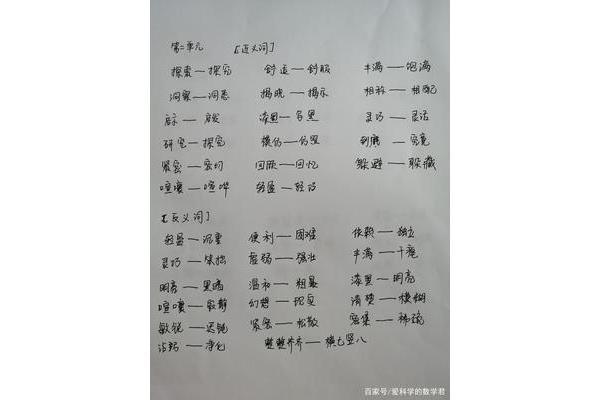 第二单元 [近义词]
探索—探究 舒适—舒服 丰满—饱满
洞察—洞悉 揭晓—揭示 相称—相配
启示—启发 漆黑—乌黑 灵巧—灵活
研究—探究 模仿—仿照 到底—究竟
紧密—密切 回顾—回忆 躲避—躲藏
喧嚷—喧哗 轻盈—轻巧
[反义词]
轻盈—沉重 便利—困难 依赖—独立
灵巧—笨拙 虚弱—强壮 丰满—干瘪
明亮—黑暗 温和—粗暴 漆黑—明亮
喧嚷—寂静 幻想—现实 清楚—模糊
敏锐—迟钝 紧密—松散 密集—稀疏
沾污—净化 整整齐齐—横七竖八
百家号/爱科学的数学君